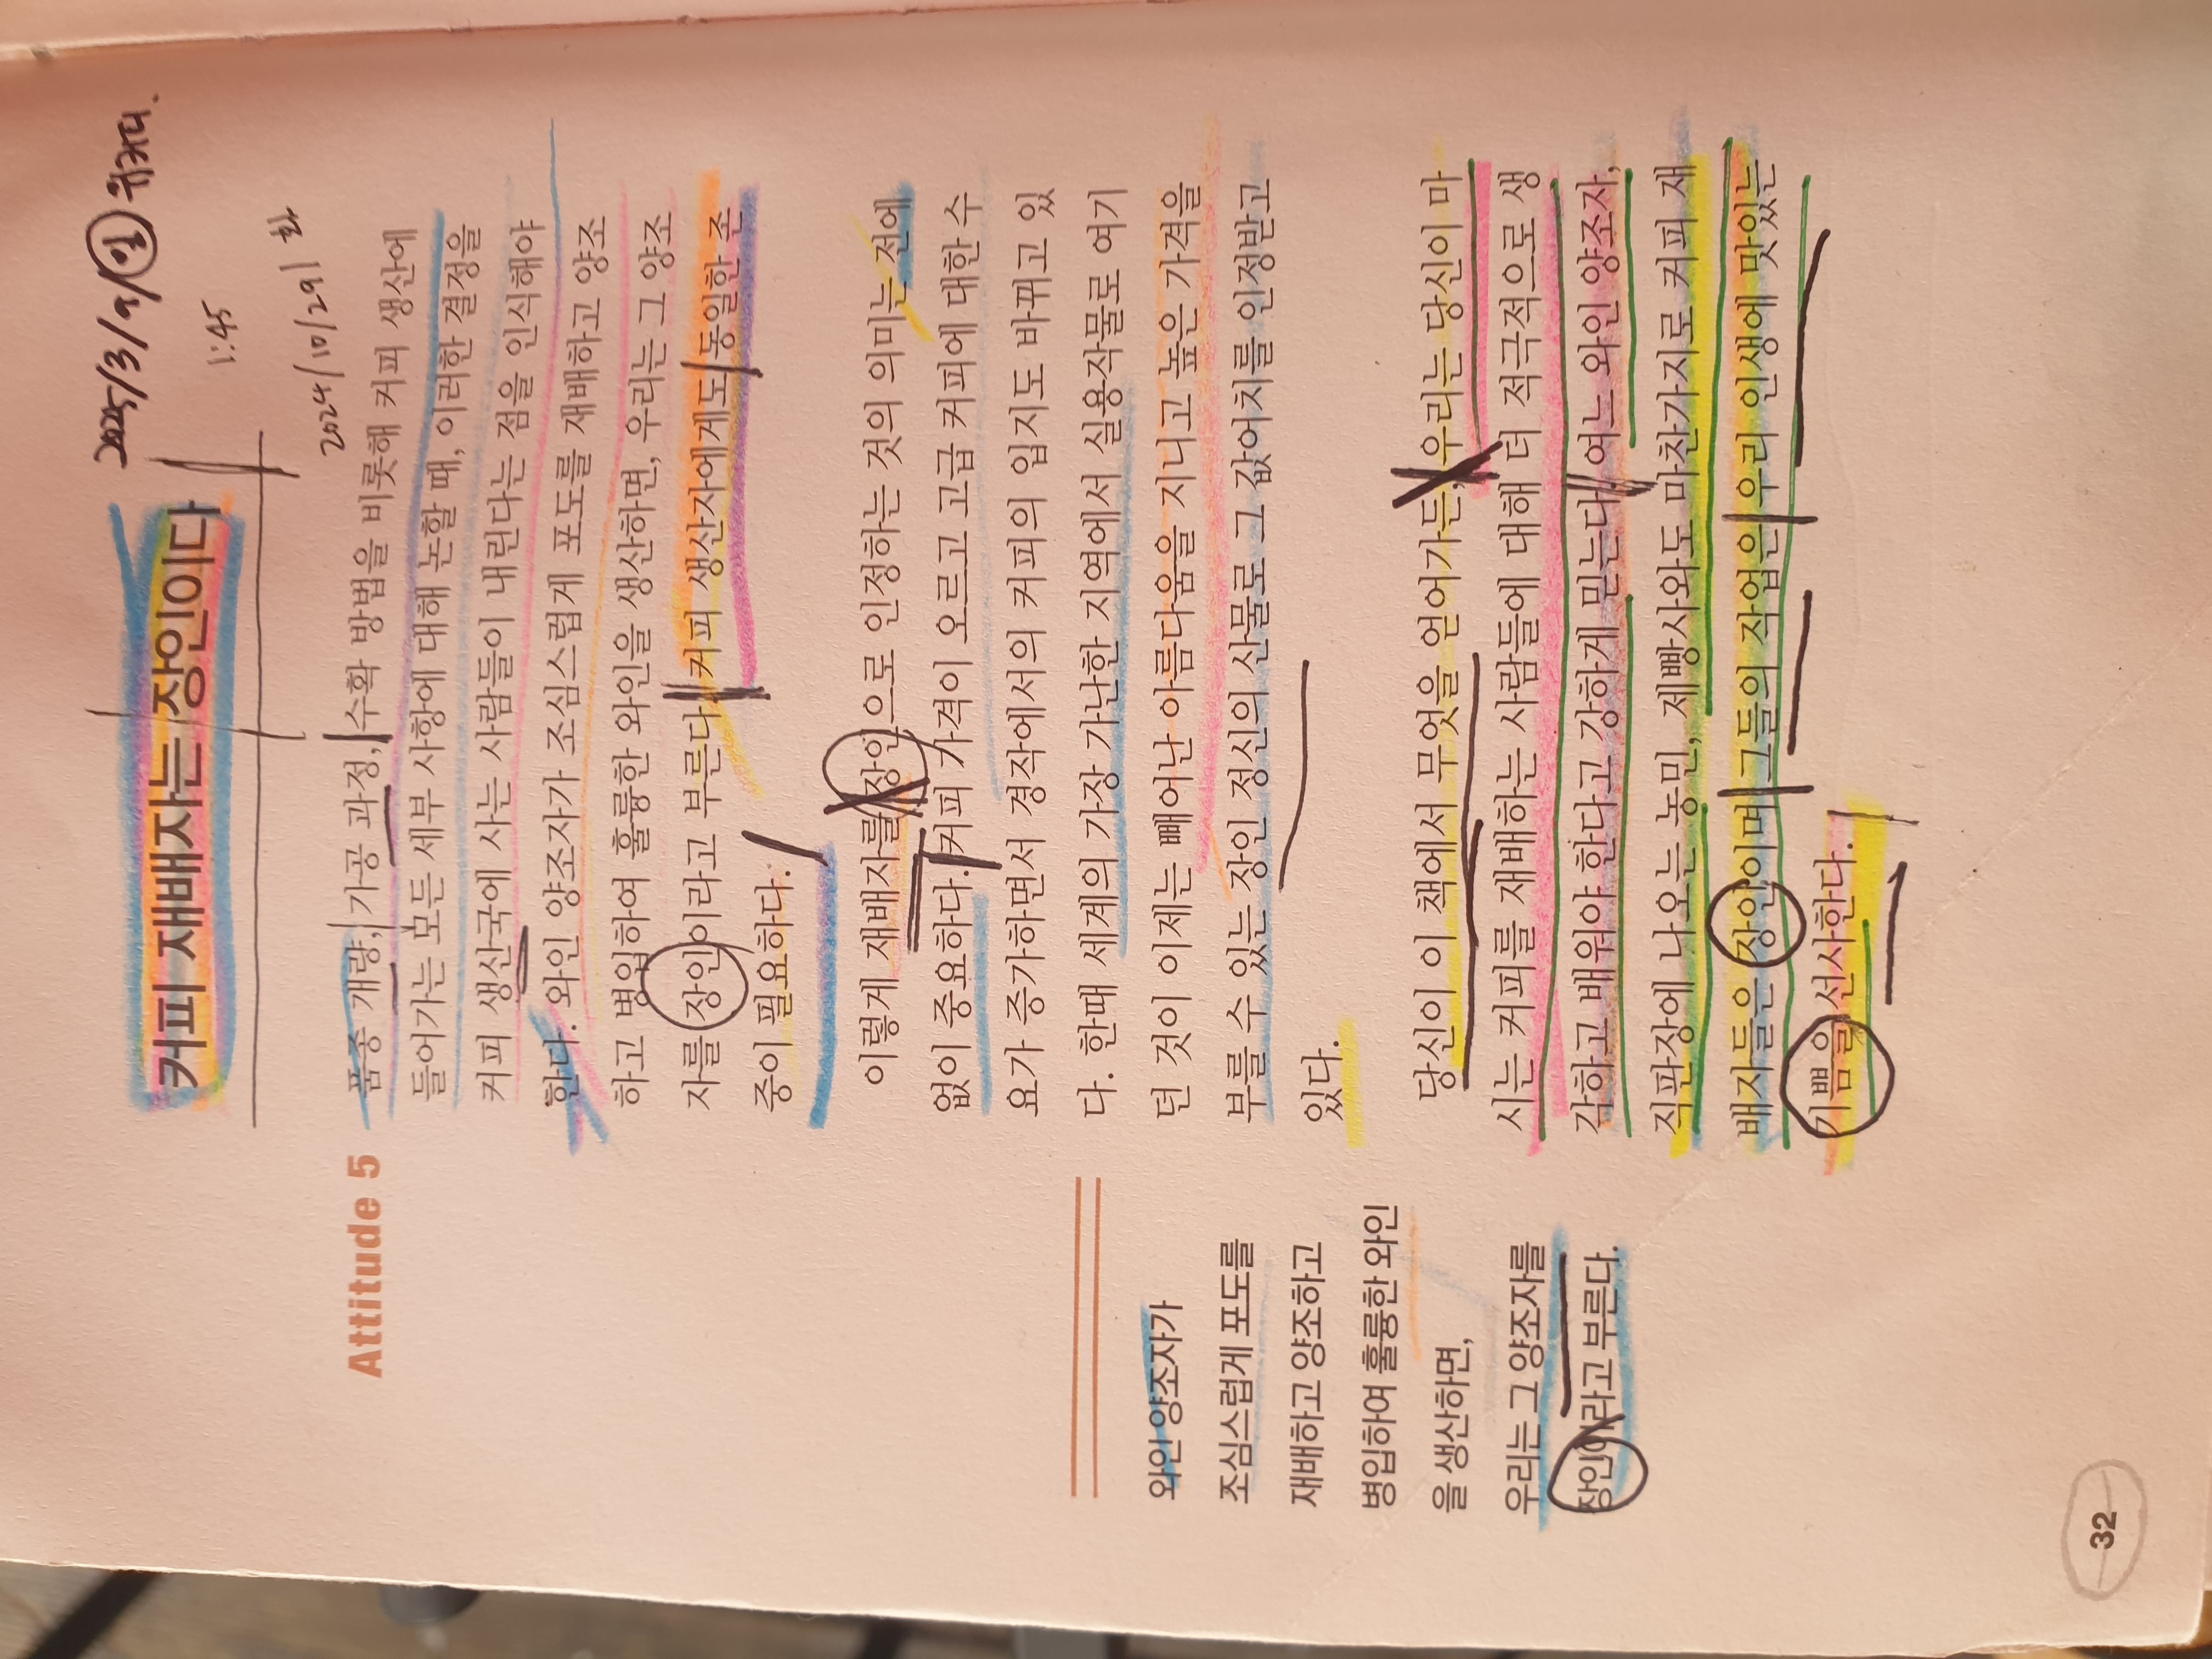 2025/3/9/일
1:45
2024/10/29/화
커피 재배자는 장인이다
Attitude 5
품종 개량, 가공 과정, 수확 방법을 비롯해 커피 생산에
들어가는 모든 세부 사항에 대해 논할 때, 이러한 결정을
커피 생산국에 사는 사람들이 내린다는 점을 인식해야
한다. 와인 양조자가 조심스럽게 포도를 재배하고 양조
하고 병입하여 훌륭한 와인을 생산하면, 우리는 그 양조
자를 장인이라고 부른다. 커피 생산자에게도 동일한 존
중이 필요하다.
이렇게 재배자를 장인으로 인정하는 것의 의미는 전에
없이 중요하다. 커피 가격이 오르고 고급 커피에 대한 수
요가 증가하면서 경작에서의 커피의 입지도 바뀌고 있
다. 한때 세계의 가장 가난한 지역에서 실용작물로 여기
던 것이 이제는 빼어난 아름다움을 지니고 높은 가격을
부를 수 있는 장인 정신의 산물로 그 값어치를 인정받고
있다.
당신이 이 책에서 무엇을 얻어가든, 우리는 당신이 마
시는 커피를 재배하는 사람들에 대해 더 적극적으로 생
각하고 배워야 한다고 강하게 믿는다. 여느 와인 양조자,
직판장에 나오는 농민, 제빵사와도 마찬가지로 커피 재
배자들은 장인이며 그들의 작업은 우리 인생에 맛있는
기쁨을 선사한다.
와인 양조자가
조심스럽게 포도를
재배하고 양조하고
병입하여 훌륭한 와인
을 생산하면,
우리는 그 양조자를
장인이라고 부른다.
32